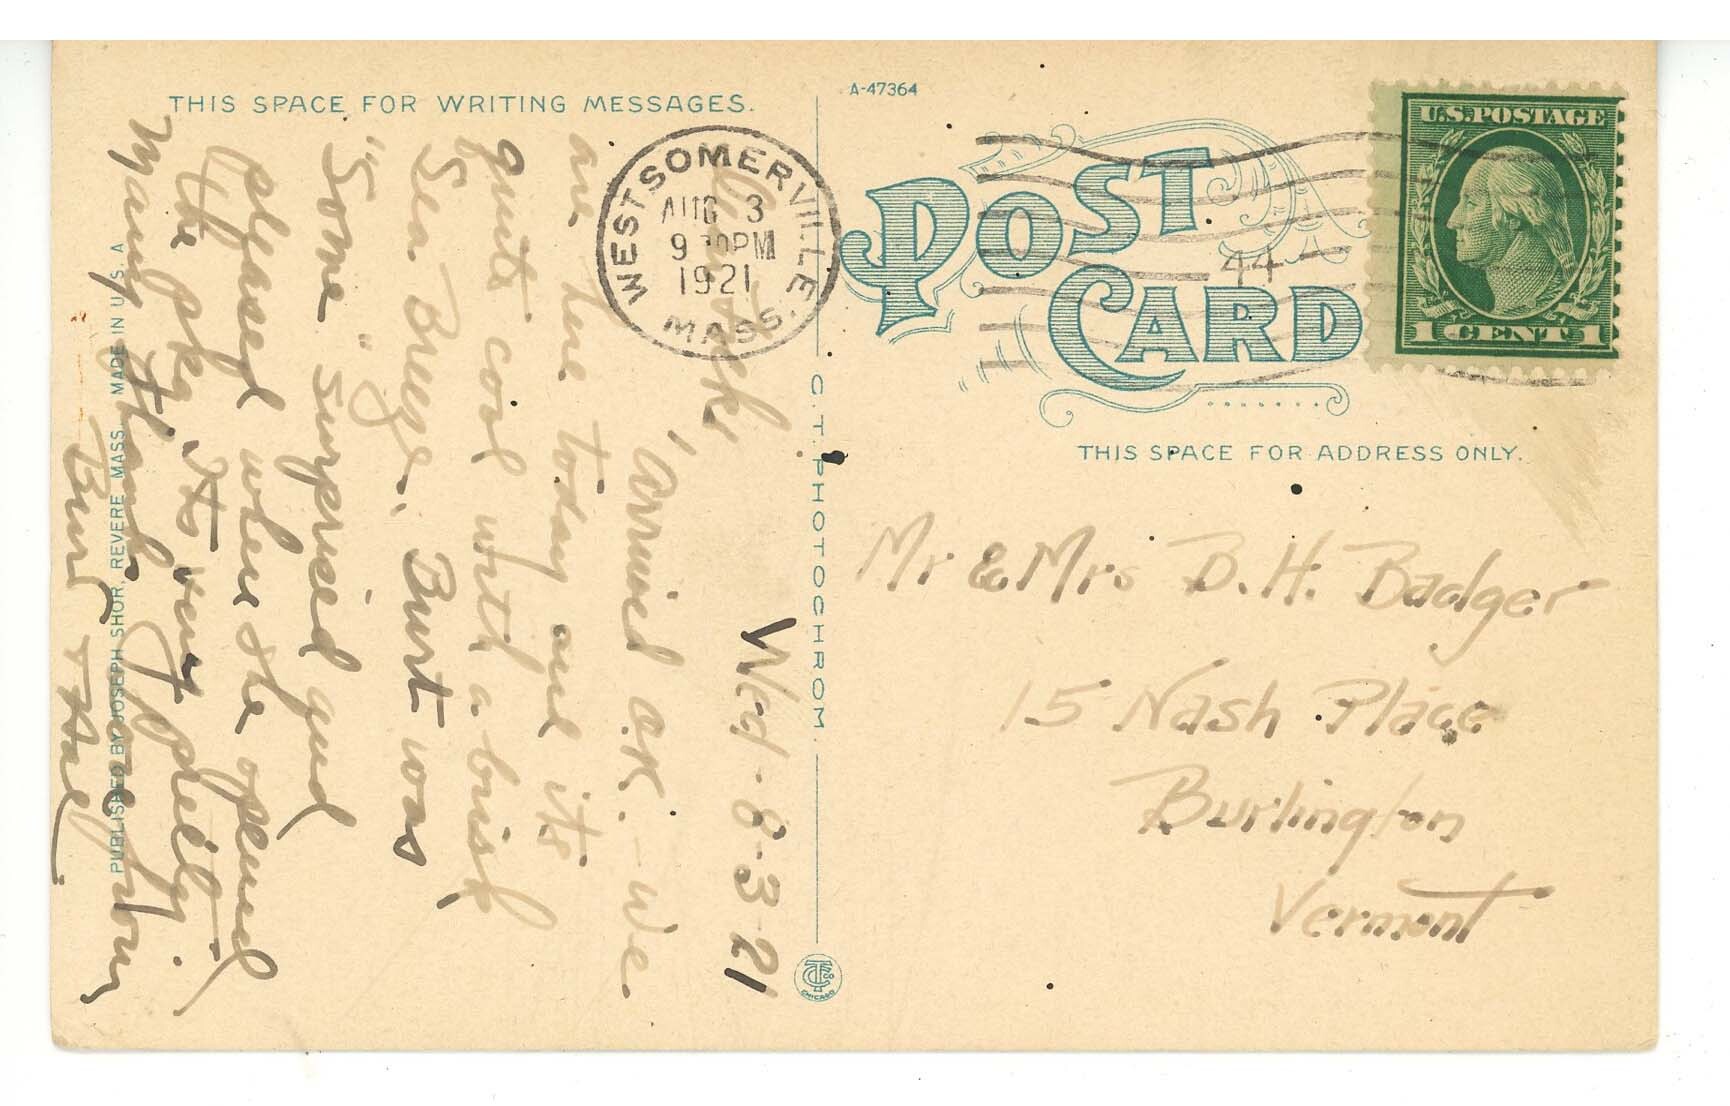 THIS SPACE FOR WRITING MESSAGES.
Wed - 8-3-21
Dear folks,
Arrived O.K. - We
are here today and its
quite cool with a brisk
Sea Breeze. Burt was
"Some" surprised and
pleased when she opened
the pkg. Its very pretty.
Many thanks from your
Burt + Hal
PUBLISHED BY JOSEPH SHOR, REVERE MASS. MADE IN U.S.A
WEST SOMERVILLE
AUG 3
9 30PM
1921
MASS.
C.T. PHOTOCHROM.
CTCO
CHICAGO
A-47364
POST
CARD
44
U.S. POSTAGE
1 CENT 1
THIS SPACE FOR ADDRESS ONLY.
Mr & Mrs B. H. Badger
15 Nash Place
Burlington
Vermont